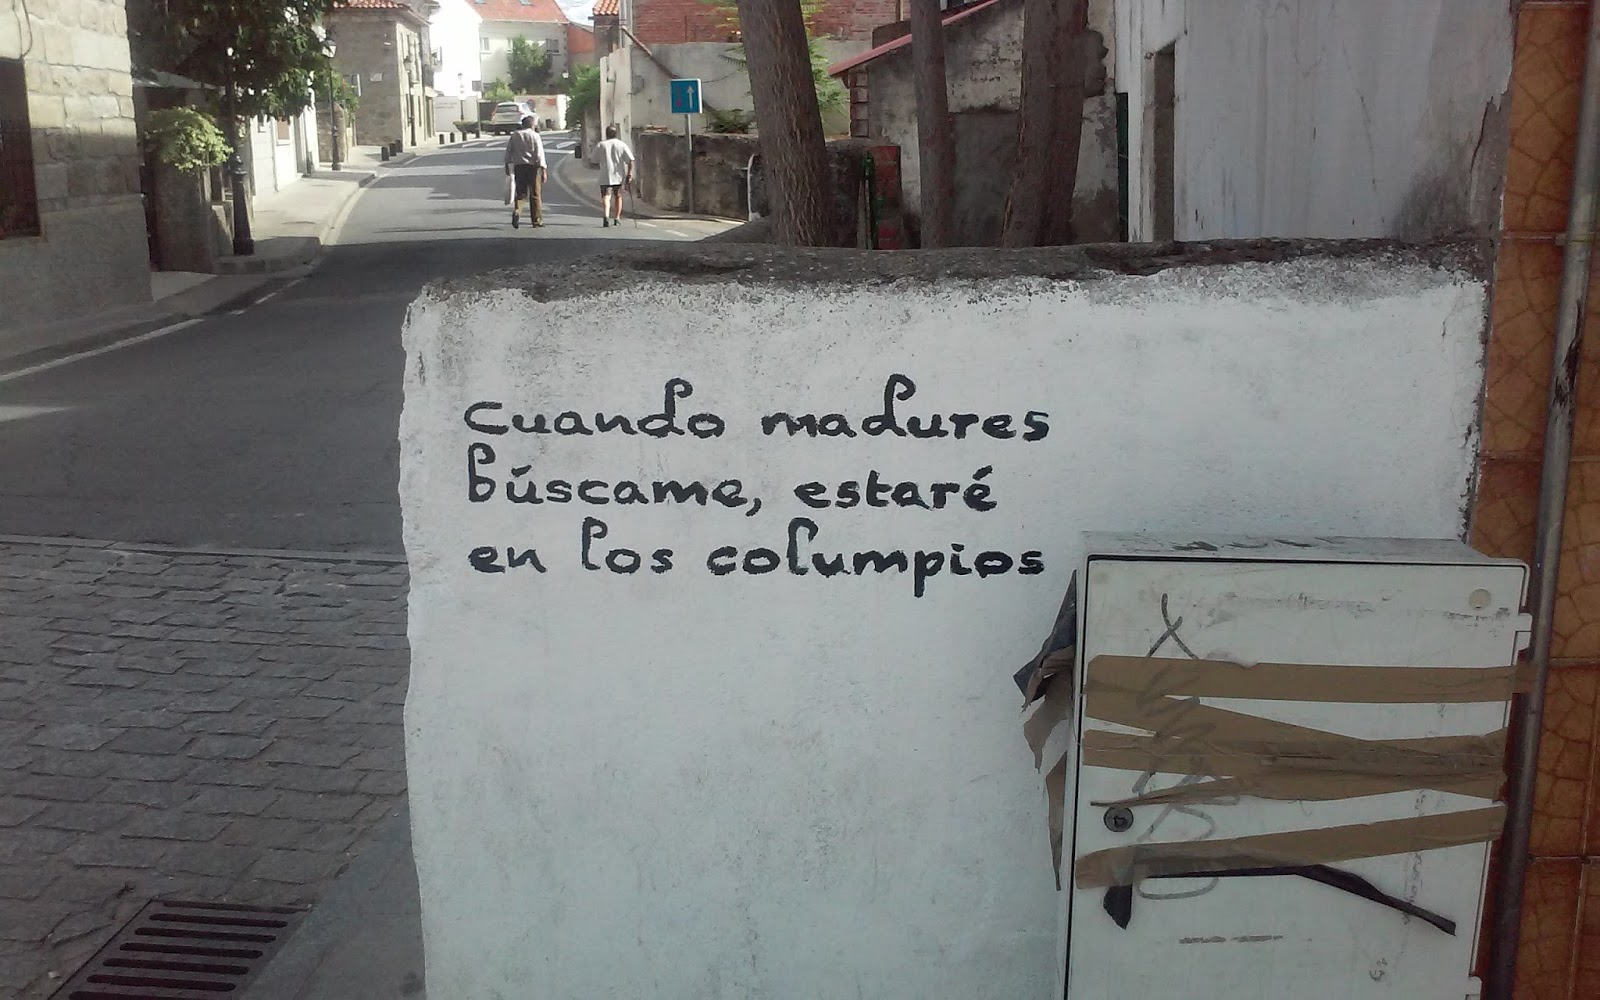 Cuando madures
búscame, estaré
en los columpios